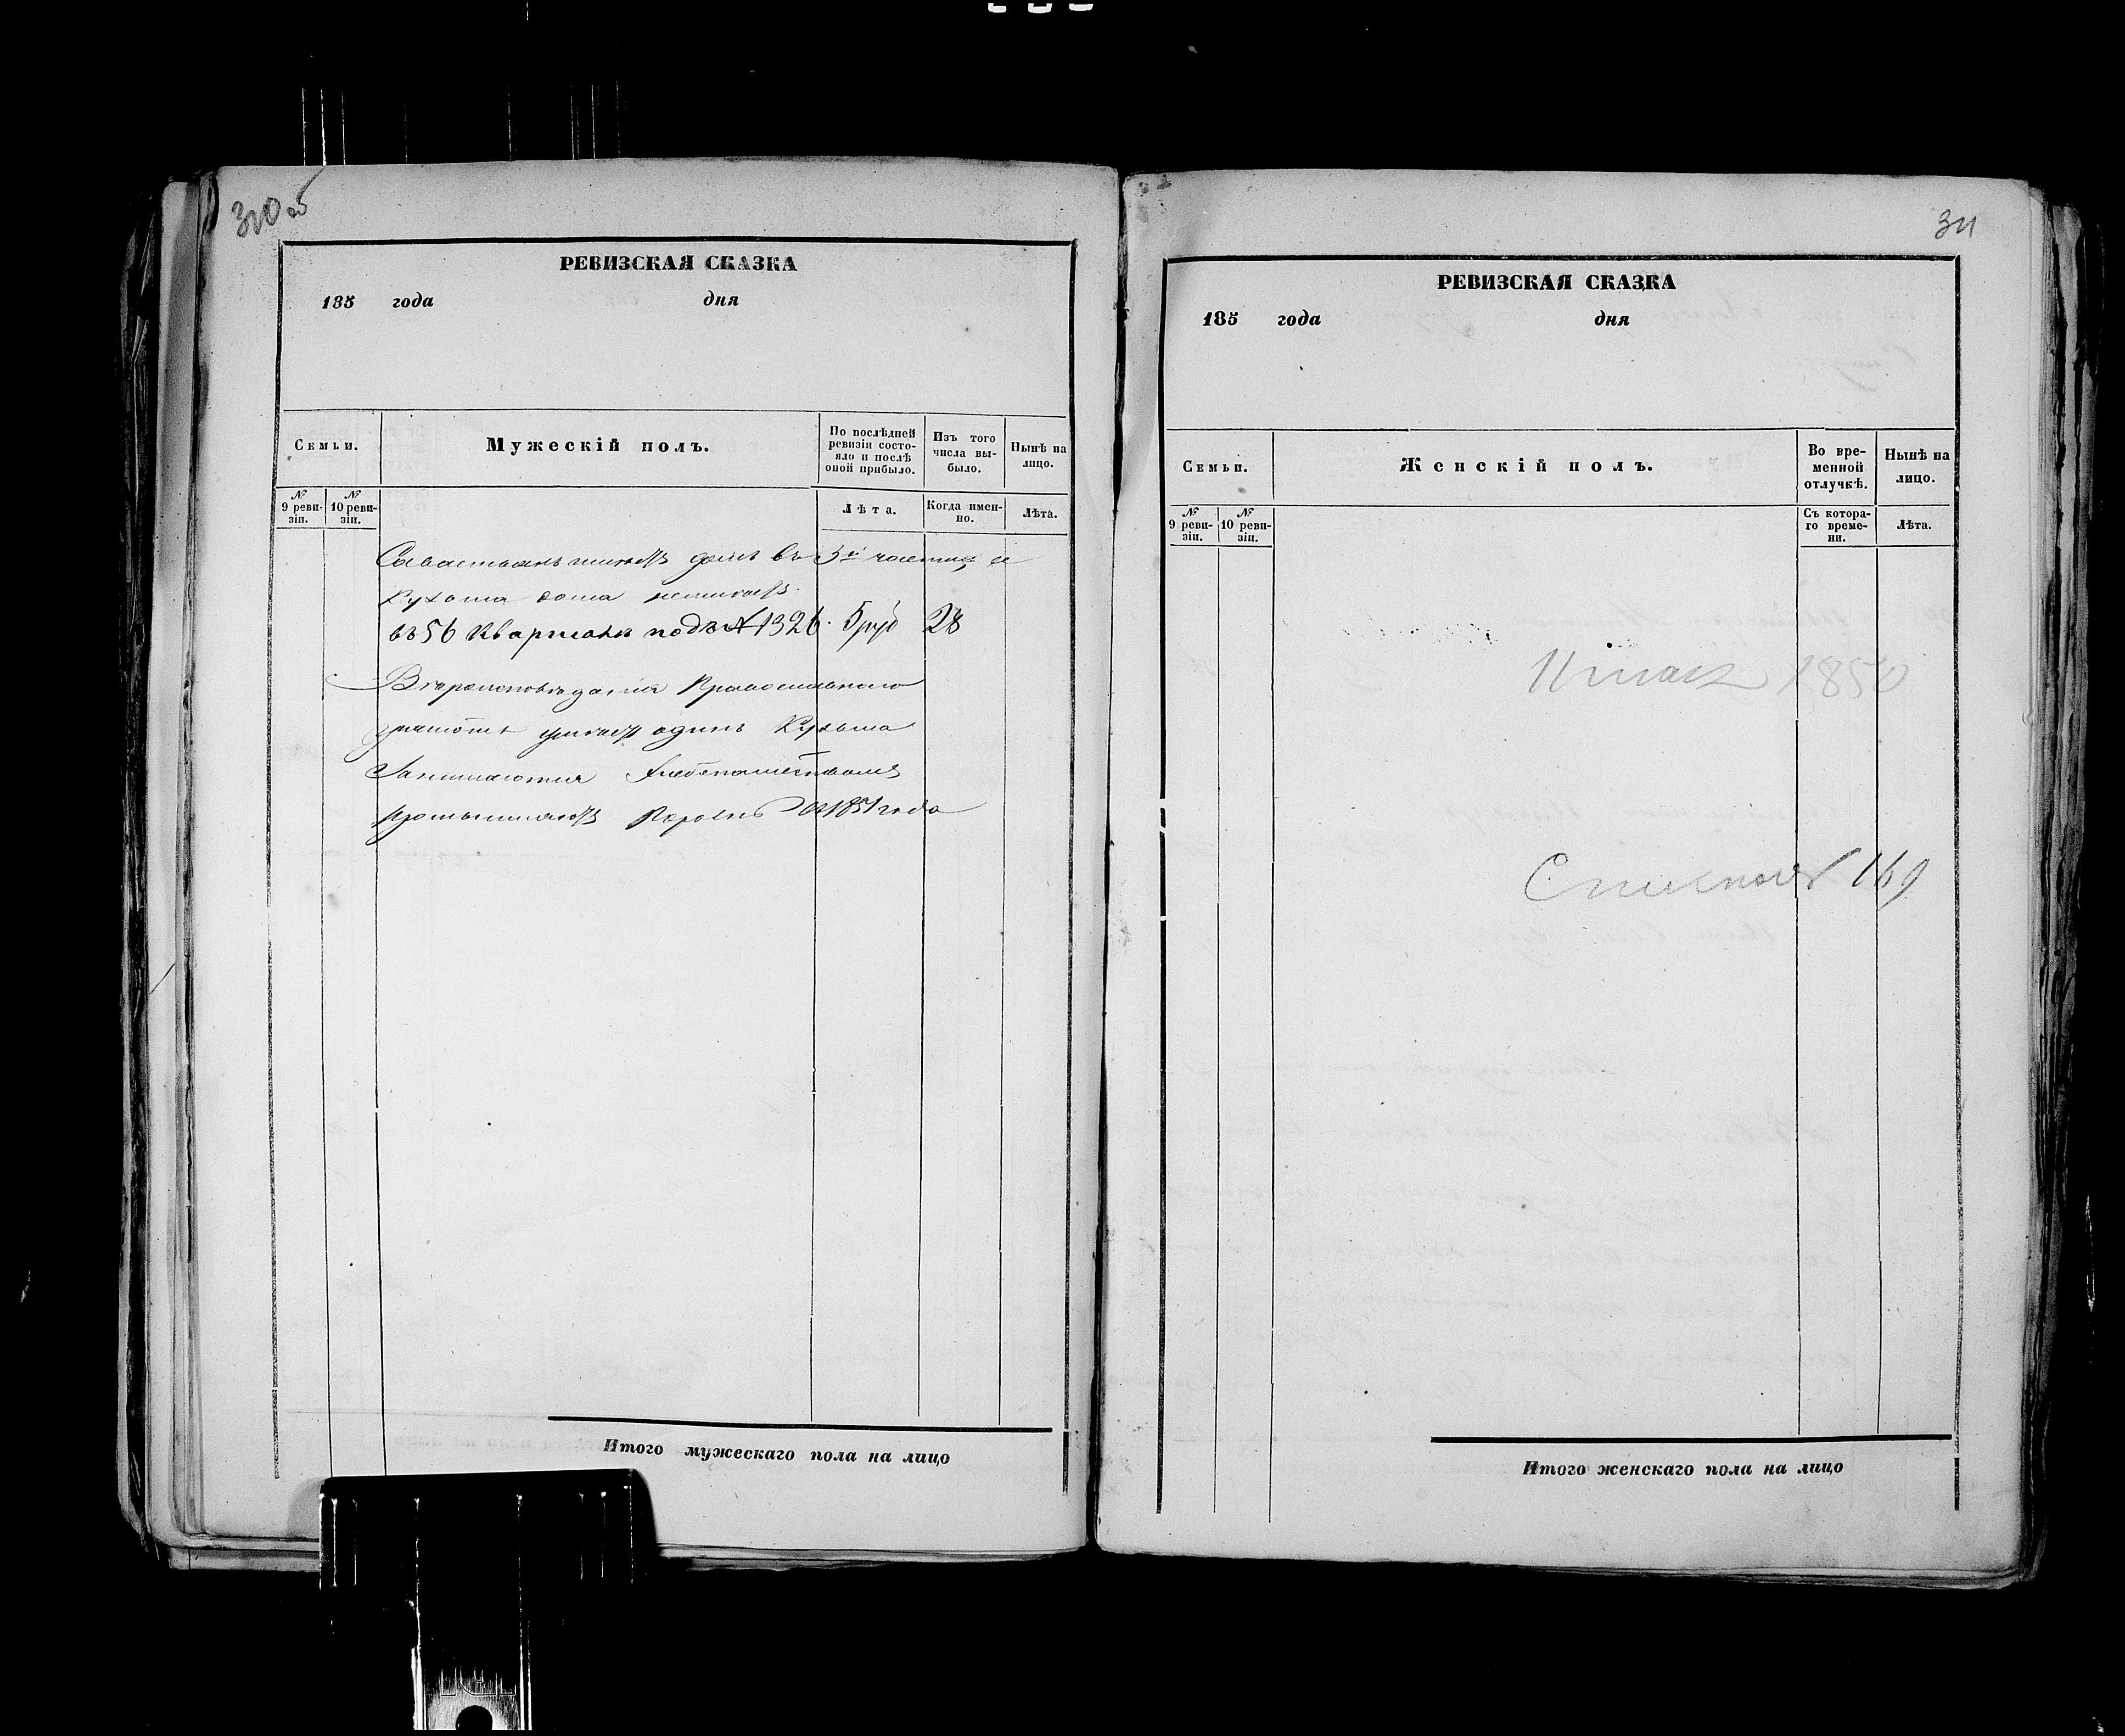 310 об
РЕВИЗСКАЯ СКАЗКА
185 года дня
Семьи.
Мужескій полъ.
По послѣдней ревизіи состояло и послѣ оной прибыло.
Изъ того числа выбыло.
Нынѣ на лицо.
№ 9 ревизіи.
№ 10 ревизіи.
Лѣта.
Когда именно.
Лѣта.
Савастьянъ имѣетъ домъ въ 3й части, а
Кузьма дома неимѣетъ
въ 56 кварталѣ подъ № 1326. 5 руб 28
Вѣроисповѣданія Православнаго
грамотѣ умѣетъ одинъ Кузьма
Занимаются Хлебопашествомъ
1851 года
Итого мужескаго пола на лицо
311
РЕВИЗСКАЯ СКАЗКА
185 года дня
Семьи.
Женскій полъ.
Во временной отлучкѣ.
Нынѣ на лицо.
№ 9 ревизіи.
№ 10 ревизіи.
Съ котораго времени.
Лѣта.
1850
169
Итого женскаго пола на лицо